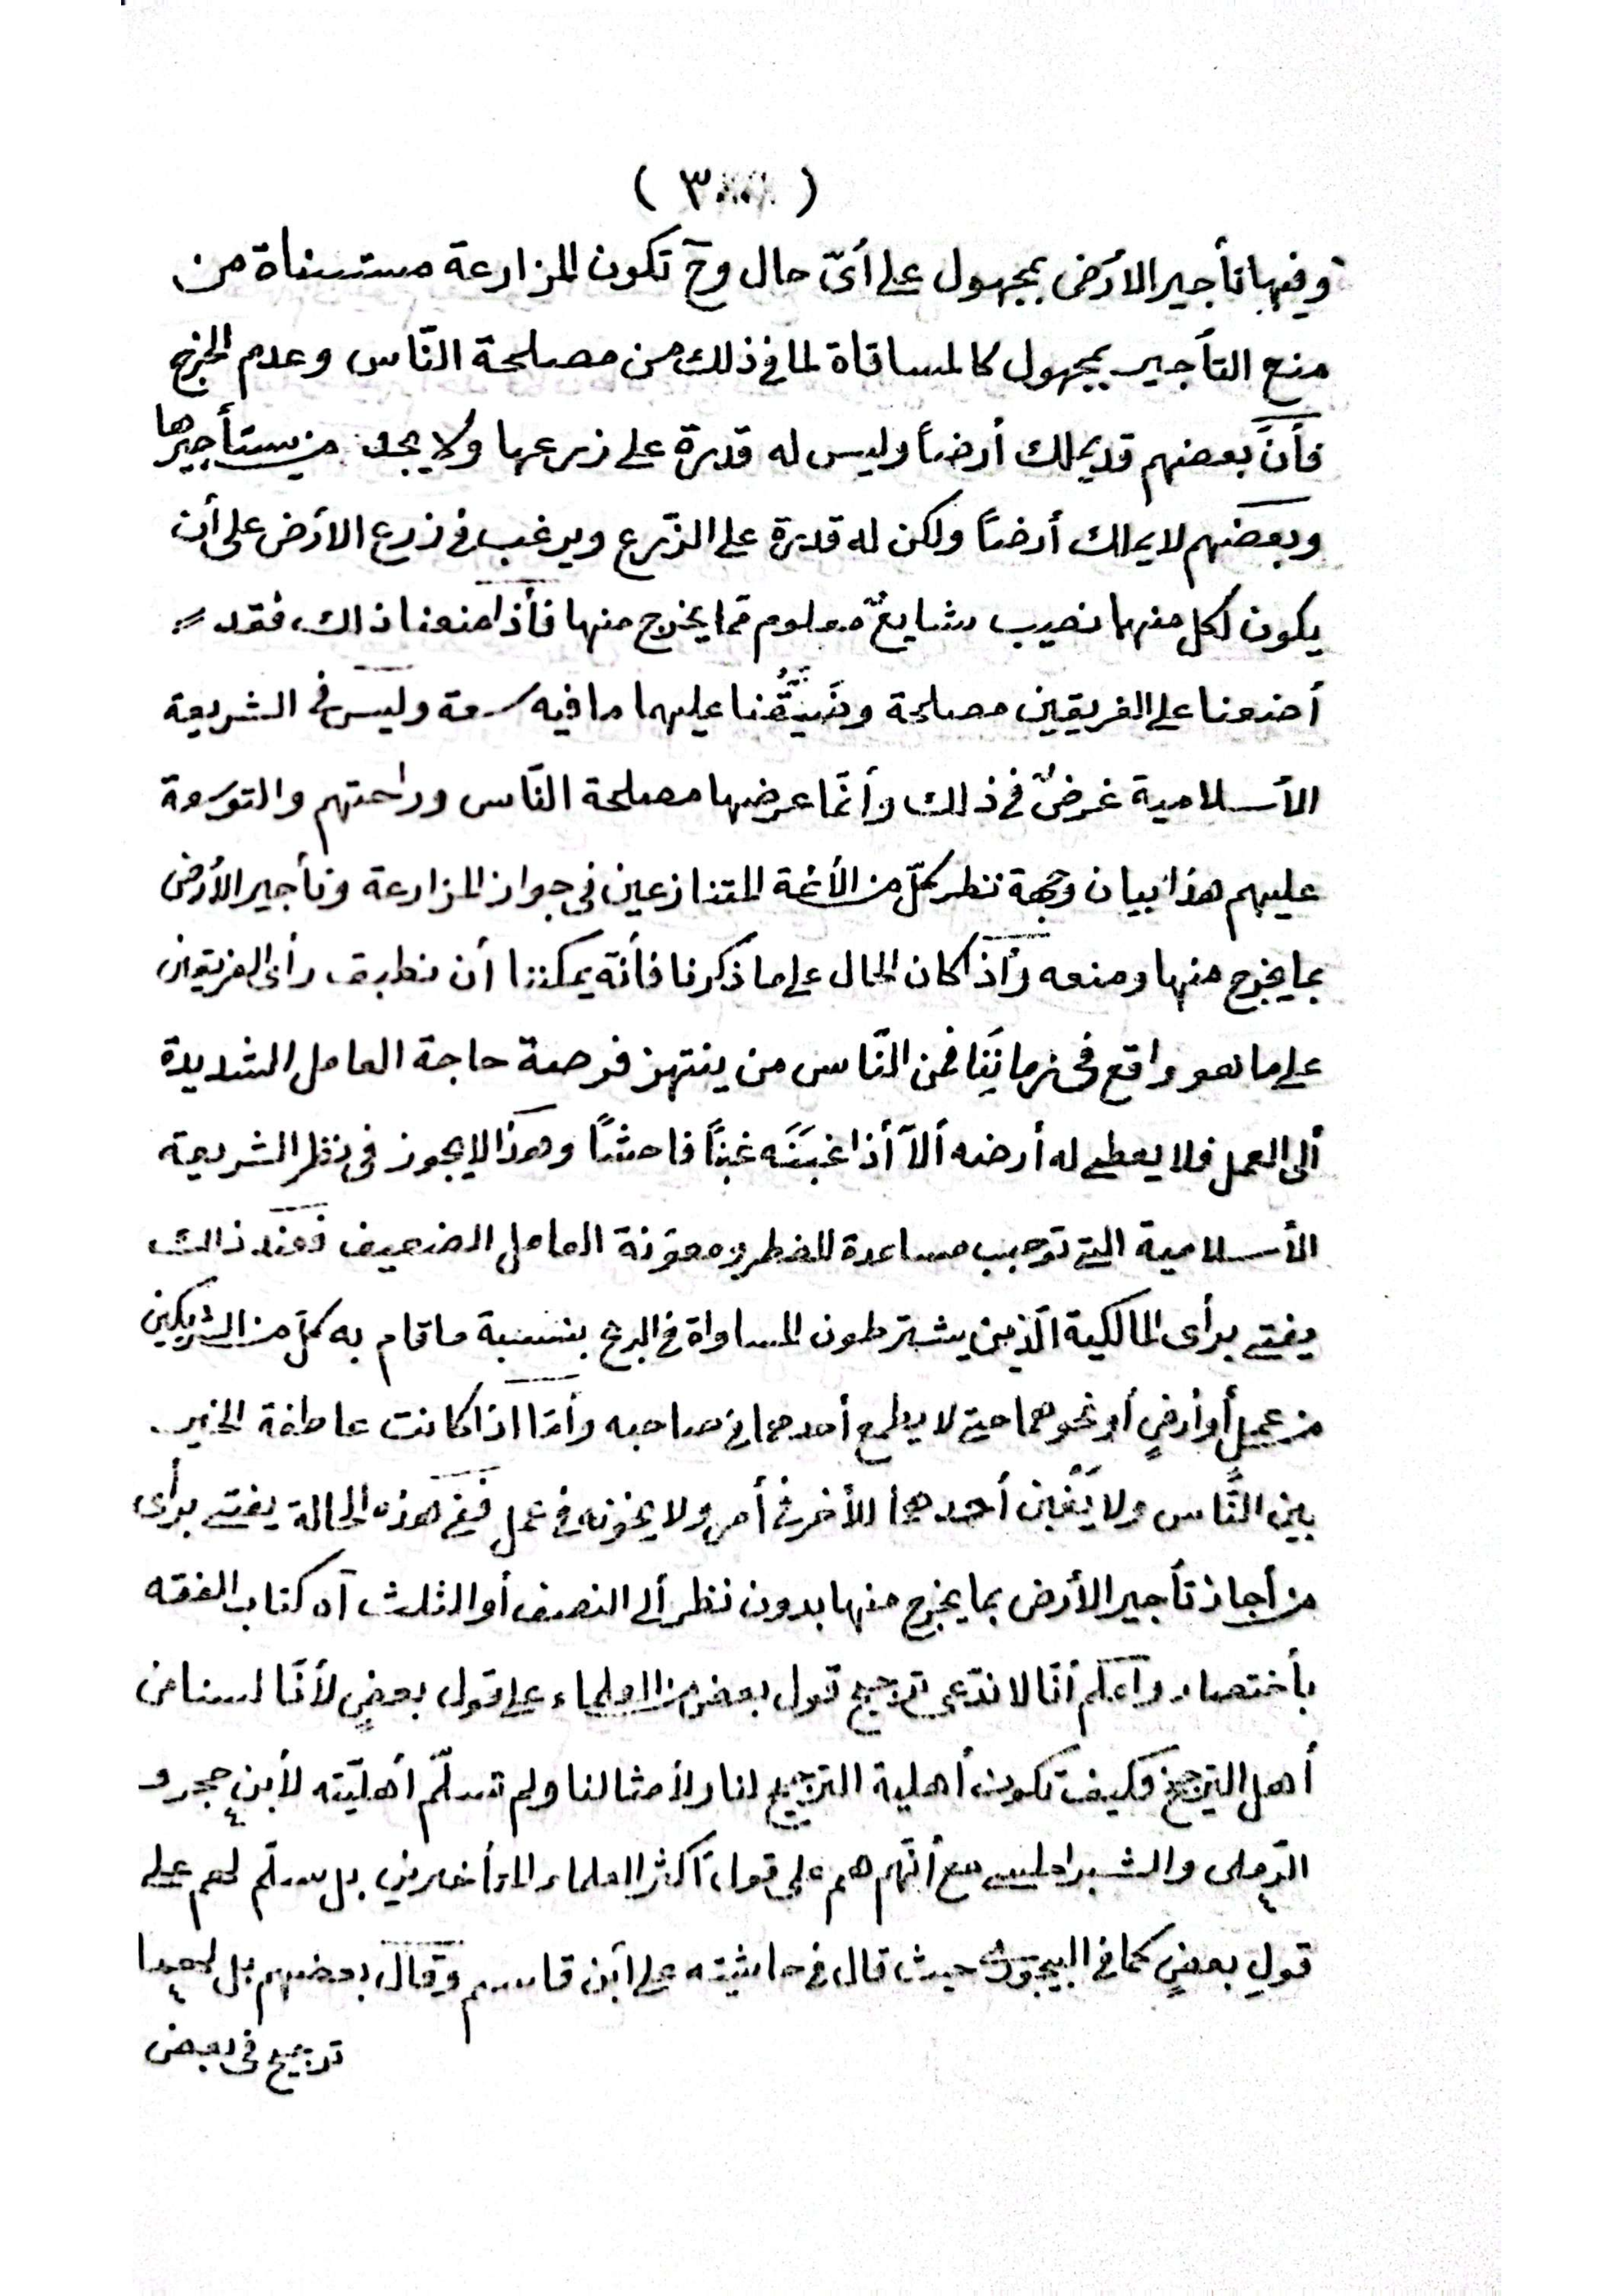 ( ٣ )
وفيها تأجير الأرض بمجهول على أىّ حال وح تكون المزارعة مستسناة من
منع التأجير بمجهول كالمساقاة لما فى ذلك من مصلحة النّاس وعدم الحرج
فأنّ بعضهم قد يملك أرضاً وليس له قدرة على زرعها ولا يجد من يستأجيرها
وبعضهم لا يملك أرضاً ولكن له قدرة على الزّرع ويرغب فى زرع الأرض على أن
يكون لكل منهما نصيب شايعٌ معلوم ممّا يخرج منها فأذا منعنا ذالك، فقد
أضعنا على الفريقين مصلحة وضَيَّقْنا عليهما ما فيه سعة وليس فى الشريعة
الأسلامية غرضٌ فى ذلك وأنّما غرضها مصلحة النّاس وراحتهم والتوسعة
عليهم هذا بيان وجهة نظر كلّ من الأئمة المتنازعين فى جواز المزارعة وتأجير الأرض
بما يخرج منها ومنعه وأذا كان الحال على ما ذكرنا فأنّه يمكننا أن نطبق رأى الفريقين
على ما هو واقع فى زماننِا فمن النّاس من ينتهز فرصة حاجة العامل الشديدة
ألى العمل فلا يعطى له أرضه ألاّ أذا غبَنَه غبنًا فاحشًا وهذا لا يجوز فى نظر الشريعة
الأسلامية التى توجب مساعدة المضطر ومعونة العامل الضعيف فعند ذالك
يفتى برأى المالكية الّذين يشترطون المساواة فى الربح بنسبة ما قام به كلّ من الشريكين
من عملٍ أو أرضٍ أو نحوهما حتى لا يطمع أحدهما فى صاحبه وأمّا اذا كانت عاطفة الخير
بين النَّاس ولا يَغْبن أحدهما الأخر فى أمر ولا يخونه فى عمل ففى هذه الحالة يفتى برأى
من أجاز تأجير الأرض بما يخرج منها بدون نظر ألى النصف أو الثلث آه كتاب الفقه
بأختصار وأعلم أنّا لا ندّعى ترجيح قول بعض من العلماء على قول بعضٍ لأنّا لسنا من
أهل الترجيح فكيف تكون أهلية الترجيح لنا ولأمثالنا ولم تسلّم أهليّته لأبن حجر و
الرّملى والشبراملسى مع أنّهم هم على قول أكثر العلماء المتأخرين بل سلّم لهم على
قولِ بعضٍ كما فى البيجورى حيث قال فى حاشيته على أبن قاسم وقال بعضهم بل لهما
ترجيح فى بعض